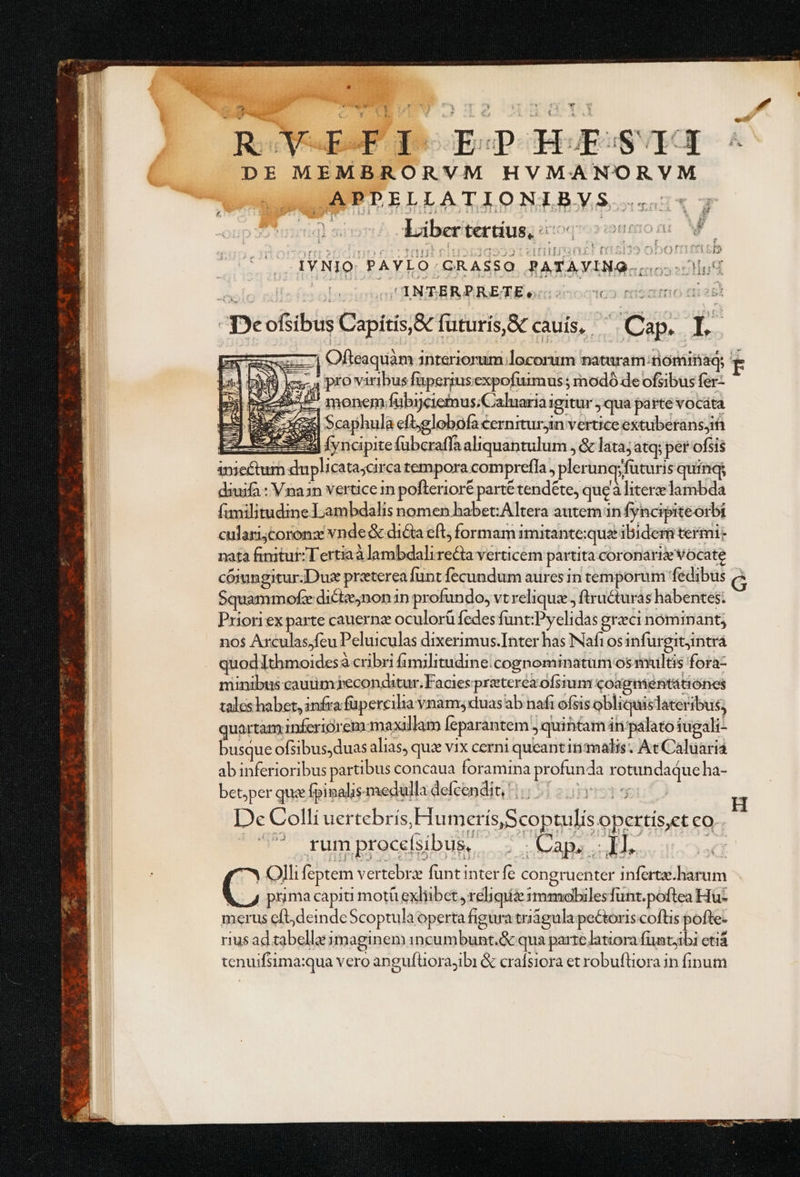 RVFFI EPHESII
DE MEMBRORVM HVMANORVM
APPELLATIONIBVS
Liber tertius,
IVNIO PAVLO CRASSO PATAVINO
INTERPRETE.
De ofsibus Capitis,& ſuturis,& cauis. Cap. I.
Oſteaquàm interiorum locorum naturam nominaq;
pro viribus ſuperius expoſuimus; modò de oſsibus ſer-
monem ſubijciemus.Caluaria igitur, qua parte vocata
Scaphula eſt,globoſa cernitur,in vertice extuberans,in
ſyncipite ſubcraſſa aliquantulum, & lata; atq; per oſsis
iniectum duplicata,circa tempora compreſſa, plerunq;ſuturis quinq;
diuiſa: Vna in vertice in poſterioré parté tendéte, que à literæ lambda
ſimilitudine Lambdalis nomen habet:Altera autem in ſyncipite orbi
culari,coronæ vnde & dicta eſt, formam imitante:quæ ibidem termi-
nata finitur:Tertia à lambdali recta verticem partita coronariæ vocate
cóiungitur.Duæ præterea ſunt ſecundum aures in temporum ſedibus
Squammoſæ dictæ,non in profundo, vt reliquæ, ſtructuras habentes:
Priori ex parte cauernæ oculorū ſedes ſunt:Pyelidas græci nominant;
nos Arculas,ſeu Peluiculas dixerimus.Inter has Naſi os inſurgit,intrá
quod Ithmoides à cribri ſimilitudine cognominatum os multis fora-
minibus cauum reconditur.Facies præterea oſsium coagmentationes
tales habet, infra ſupercilia vnam, duas ab naſi oſsis obliquis lateribus,
quartam inferiorem maxillam ſeparantem, quintam in palato iugali-
busque oſsibus,duas alias, quæ vix cerni queant in malis. At Caluaria
ab inferioribus partibus concaua foramina profunda rotundaque ha-
bet,per quæ ſpinalis medulla deſcendit.
De Colli uertebris,Humeris,Scoptulis opertis,et eo-
rum proceſsibus. Cap. II.
COlli ſeptem vertebræ ſunt inter ſe congruenter inſertæ.harum
prima capiti motū exhibet, reliquæ immobiles ſunt.poſtea Hu-
merus eſt,deinde Scoptula operta figura triágula pectoris coſtis poſte-
rius ad tabellæ imaginem incumbunt.& qua parte latiora ſunt,ibi etiá
tenuiſsima:qua vero anguſtiora,ibi & craſsiora et robuſtiora in ſinum
F
G
H